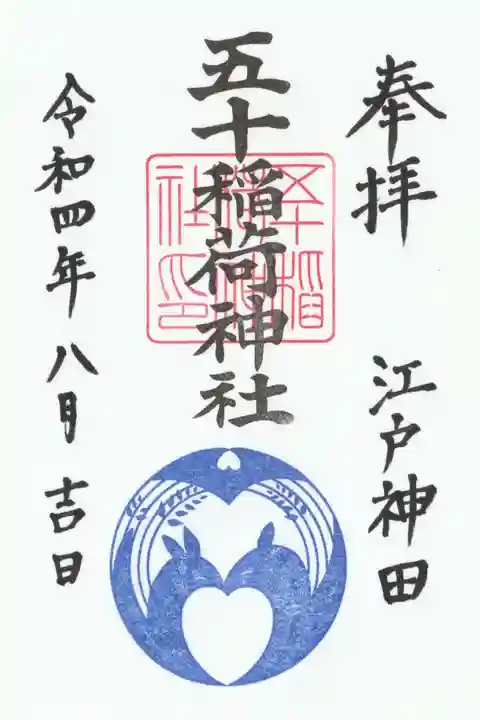 奉拝
江戸神田
五十稲荷神社
令和四年八月吉日